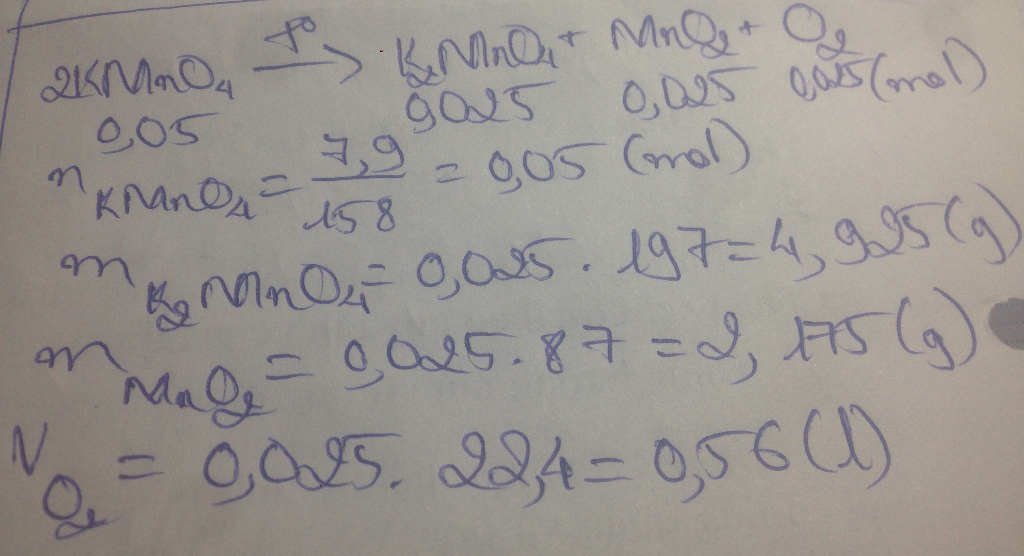 2KMnO₄ —t°→ K₂MnO₄ + MnO₂ + O₂
0,05 0,025 0,025 0,025 (mol)
n KMnO₄ = 7,9/158 = 0,05 (mol)
m K₂MnO₄ = 0,025 . 197 = 4,925 (g)
m MnO₂ = 0,025 . 87 = 2,175 (g)
V O₂ = 0,025 . 22,4 = 0,56 (l)